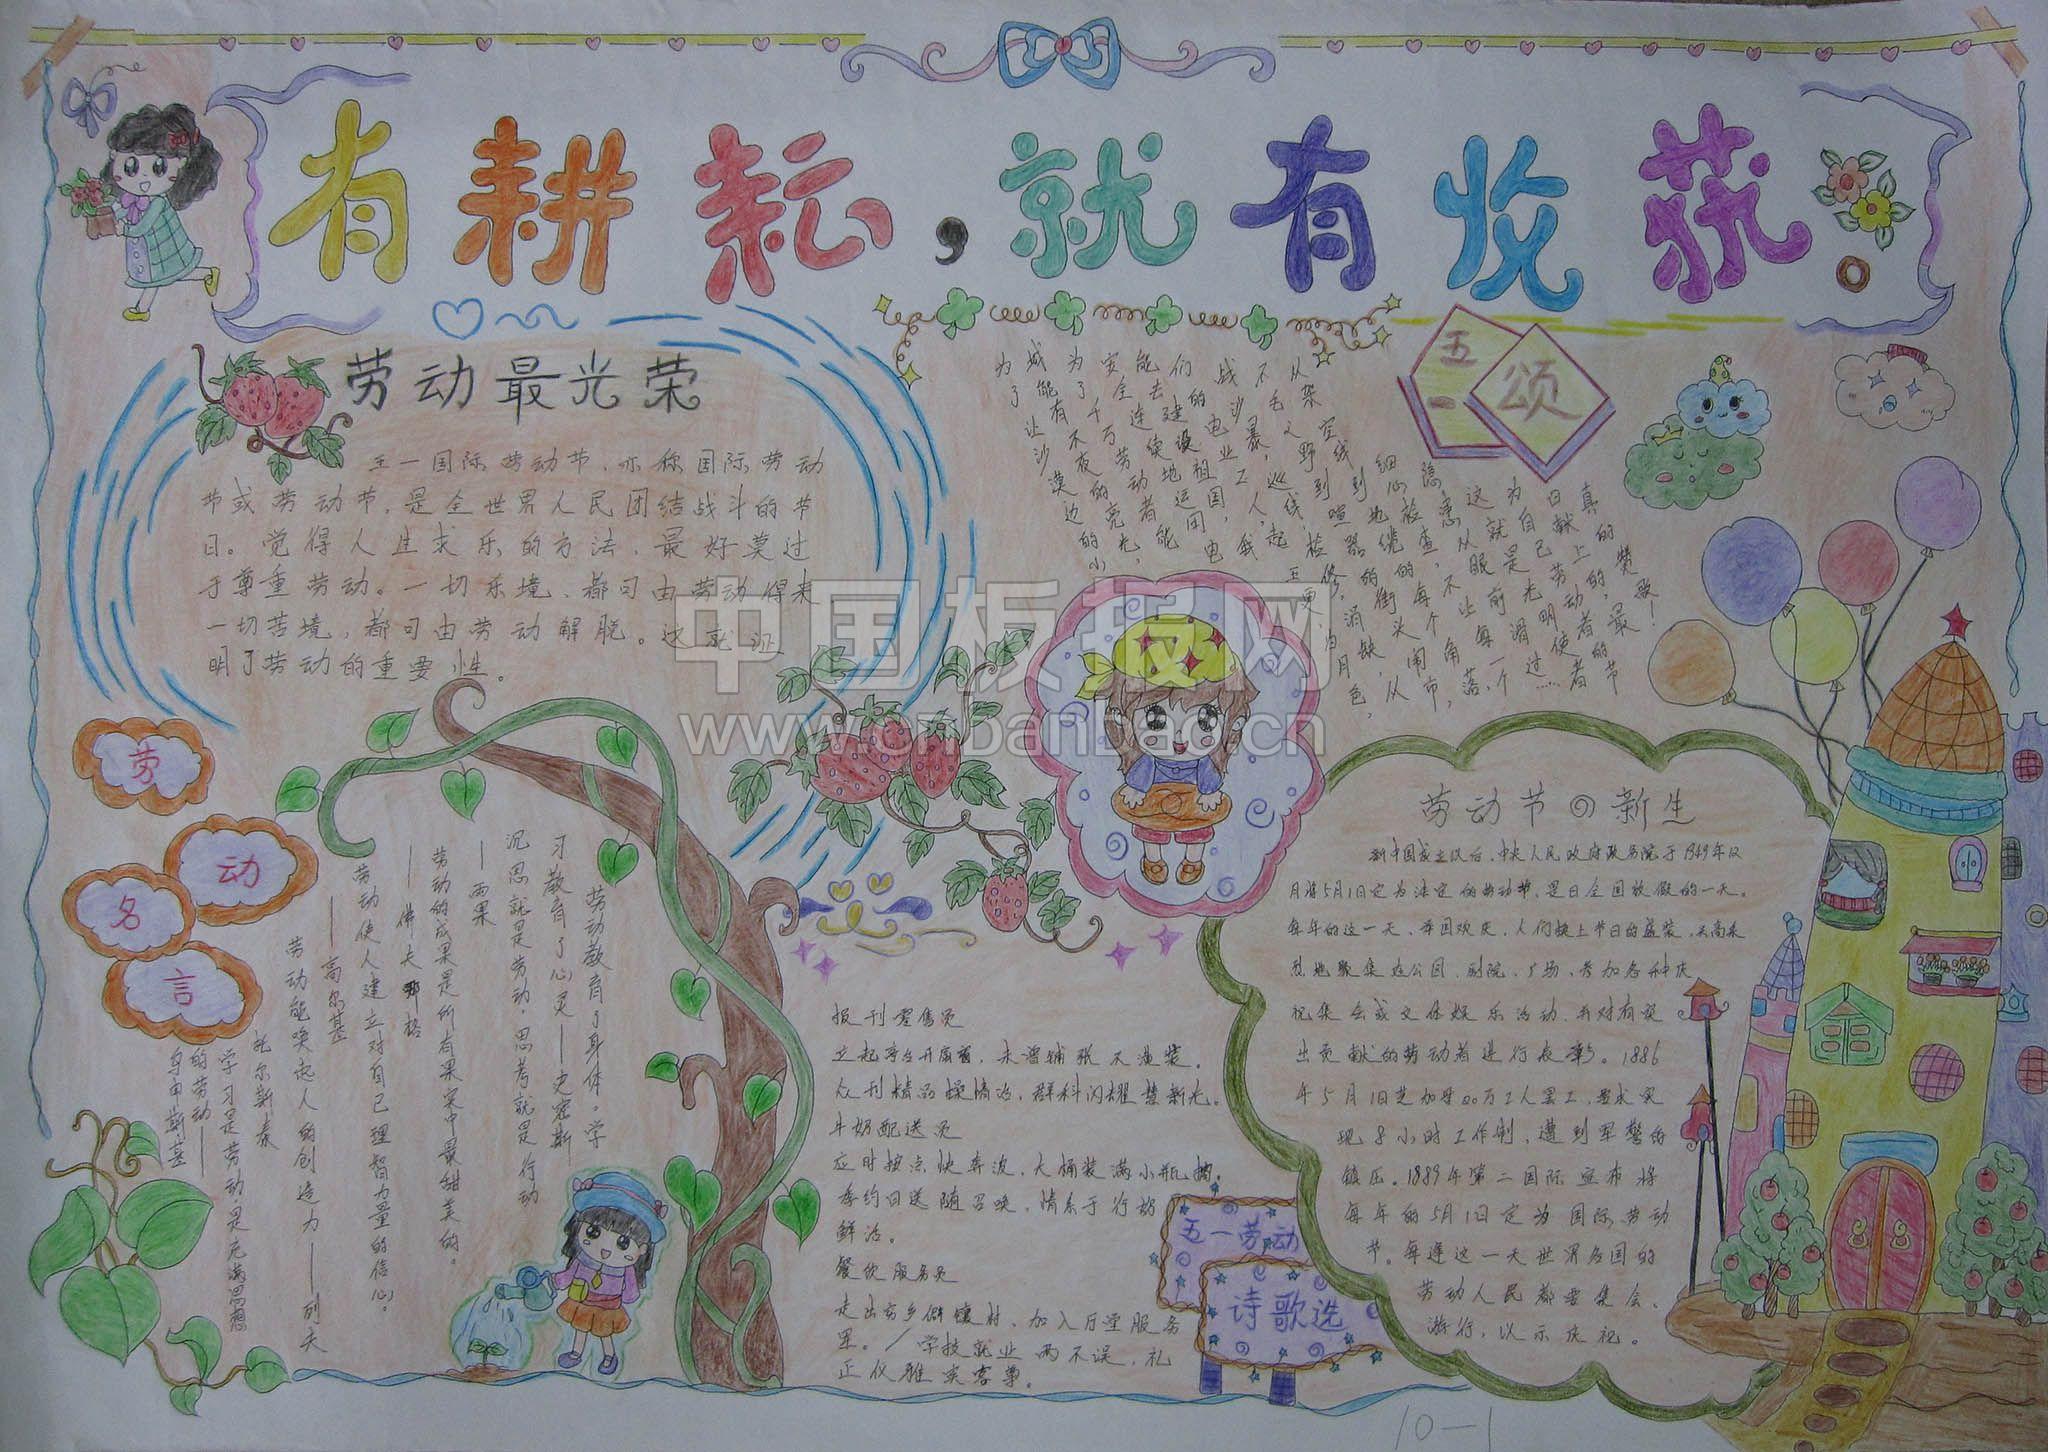 有耕耘,就有收获.
劳动最光荣
五一国际劳动节,亦称国际劳动
节或劳动节,是全世界人民团结战斗的节
日。觉得人生求乐的方法,最好莫过
于尊重劳动。一切乐境,都可由劳动得来
一切苦境,都可由劳动解脱。这就证
明了劳动的重要性。
五一
颂
为了让沙漠边的小
城能有不夜的光亮,
为了千万劳动者能
安全连续地运用
能去建设祖国,
们的电业工人,
战沙暴,巡线
不毛又野
从
中国板报网
www.cnbanbao.cn
劳动名言
劳动教育了身体,学
习教育了心灵——史密斯
沉思就是劳动,思考就是行动
——雨果
劳动的成果是所有果实中最甜美的。
——佛夫那格
劳动使人建立对自己理智力量的信心。
——高尔基
劳动能唤起人的创造力——列夫
托尔斯泰
学习是劳动,是充满思想
的劳动——
乌申斯基
报刊零售员
立起亭台开扇窗,未曾铺张不漫装。
众刊精品操情治,群科闪耀慧新光。
牛奶配送员
应时按点快奔波,大桶装满小瓶摘。
季约日送随召唤,情系于行奶
鲜活。
餐饮服务员
走出穷乡僻壤村,加入厅堂服务
里。学技就业两不误,礼
正仪雅宾客尊。
五一劳动
诗歌选
劳动节の新生
新中国成立以后,中央人民政府政务院于1949年12
月将5月1日定为法定的劳动节,是日全国放假的一天。
每年的这一天,举国欢庆,人们换上节日的盛装,兴高采
烈地聚集在公园、剧院、广场,参加各种庆
祝集会或文体娱乐活动,并对有突
出贡献的劳动者进行表彰。1886
年5月1日芝加哥20万工人罢工,要求实
现8小时工作制,遭到军警的
镇压。1889年第二国际宣布将
每年的5月1日定为国际劳动
节。每逢这一天世界各国的
劳动人民都要集会、
游行,以示庆祝。
10-1